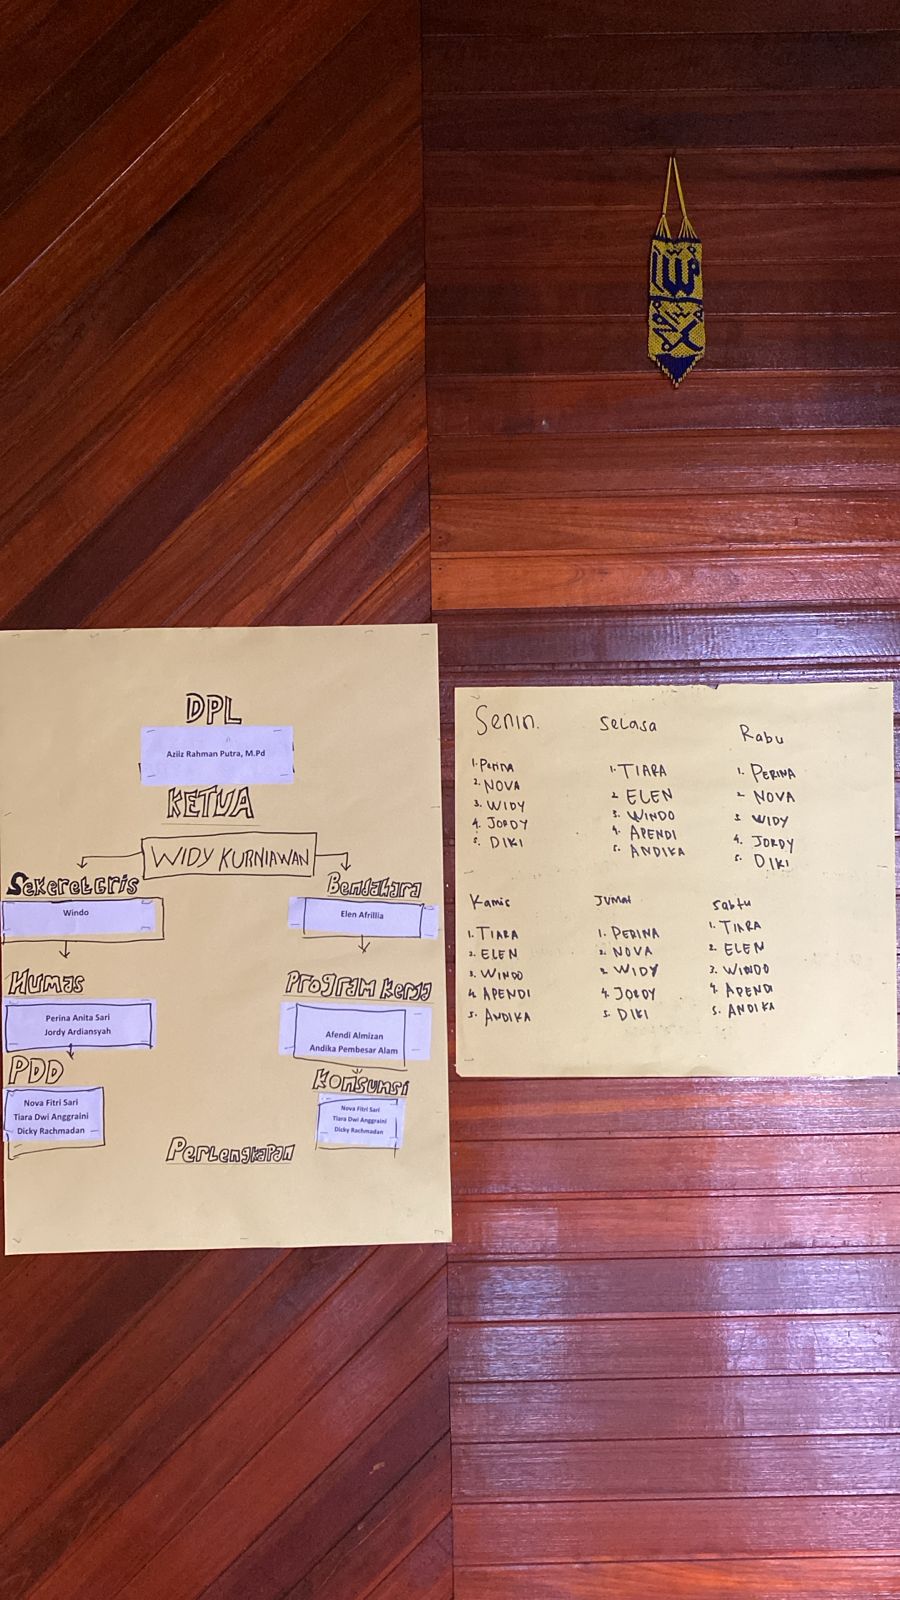 DPL
Aziiz Rahman Putra, M.Pd
KETUA
WIDY KURNIAWAN
Sekeretaris
Windo
Bendahara
Elen Afrillia
Humas
Perina Anita Sari
Jordy Ardiansyah
Program Kerja
Afendi Almizan
Andika Pembesar Alam
PDD
Nova Fitri Sari
Tiara Dwi Anggraini
Dicky Rachmadan
Konsumsi
Nova Fitri Sari
Tiara Dwi Anggraini
Dicky Rachmadan
Perlengkapan
Senin.
1. Perina
2. NOVA
3. WIDY
4. JORDY
5. DIKI
Selasa
1. TIARA
2 ELEN
3. WINDO
4. APENDI
5. ANDIKA
Rabu
1. PERINA
2. NOVA
3 WIDY
4. JORDY
5. DIKI
Kamis
1. TIARA
2. ELEN
3. WINDO
4. APENDI
5. ANDIKA
JUMAT
1. PERINA
2. NOVA
2. WIDY
4. JORDY
5. DIKI
Sabtu
1. TIARA
2. ELEN
3. WINDO
4. APENDI
5. ANDIKA